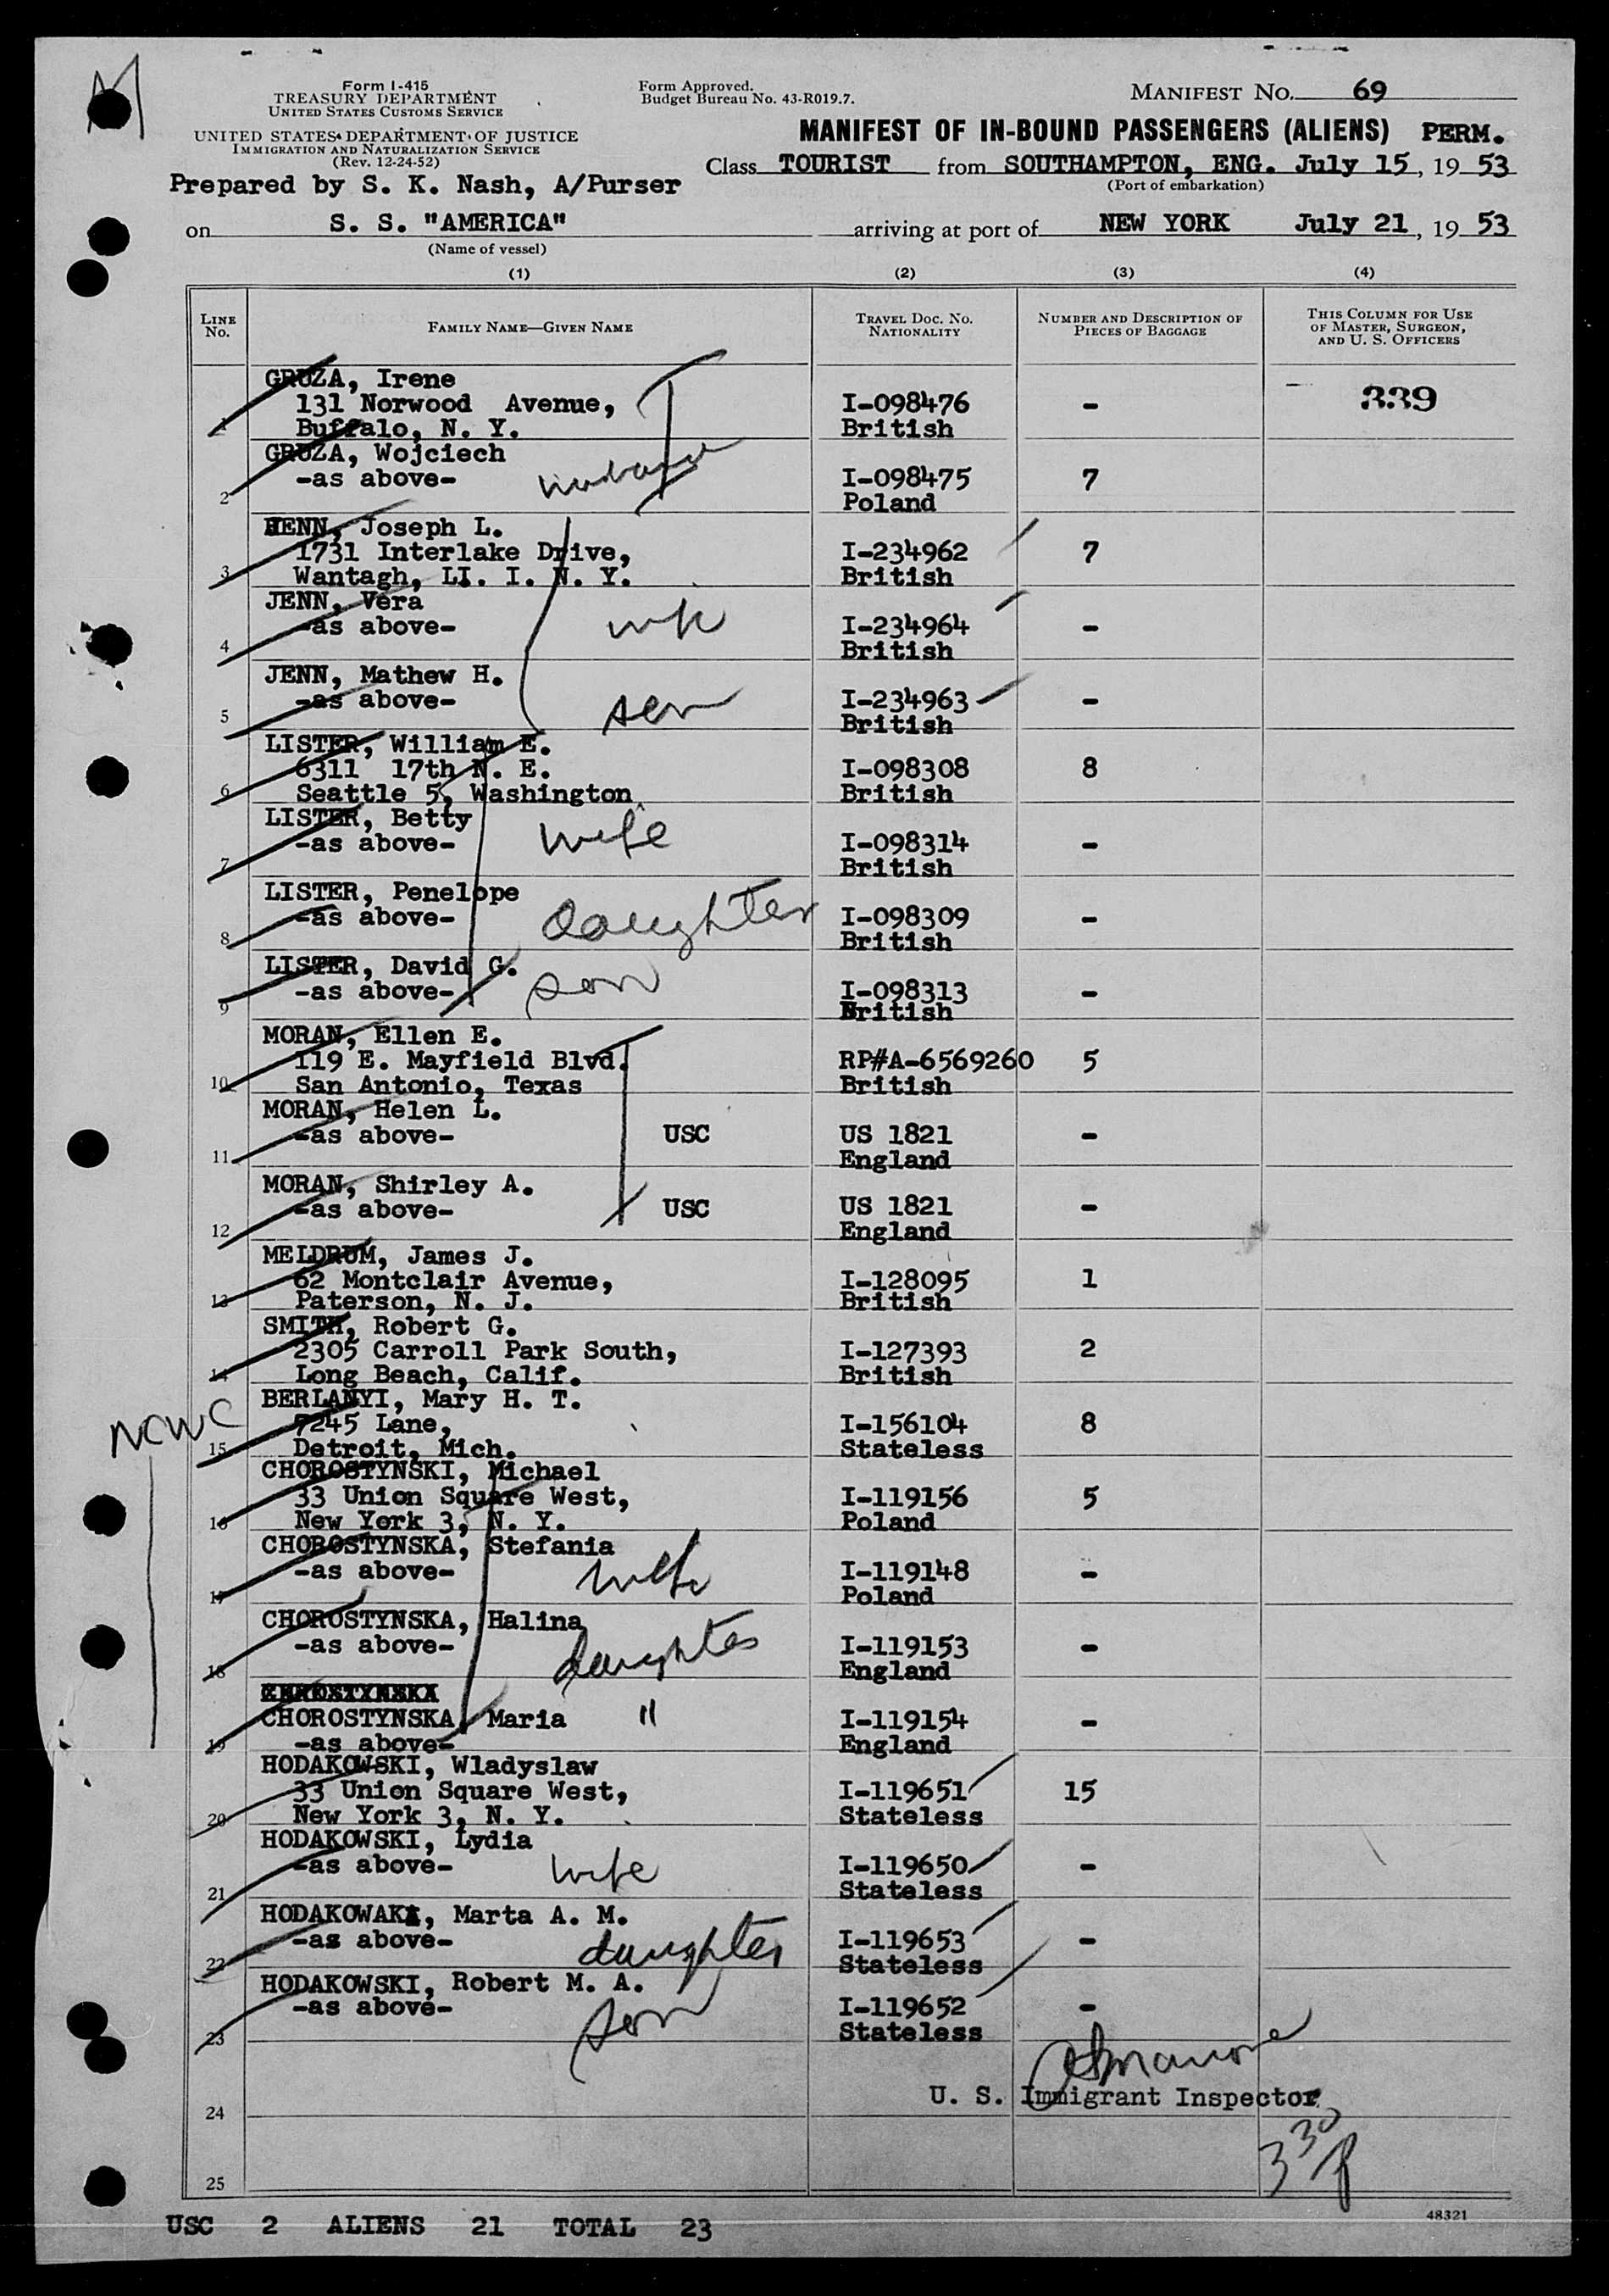 Form I-415
TREASURY DEPARTMENT
UNITED STATES CUSTOMS SERVICE
UNITED STATES DEPARTMENT OF JUSTICE
IMMIGRATION AND NATURALIZATION SERVICE
(Rev. 12-24-52)
Form Approved.
Budget Bureau No. 43-R019.7.
MANIFEST NO. 69
MANIFEST OF IN-BOUND PASSENGERS (ALIENS) PERM.
Class TOURIST from SOUTHAMPTON, ENG. July 15, 19 53
(Port of embarkation)
Prepared by S. K. Nash, A/Purser
on S. S. "AMERICA" arriving at port of NEW YORK July 21, 19 53
(Name of vessel)
(1) (2) (3) (4)
LINE No.
FAMILY NAME—GIVEN NAME
TRAVEL DOC. NO. NATIONALITY
NUMBER AND DESCRIPTION OF PIECES OF BAGGAGE
THIS COLUMN FOR USE OF MASTER, SURGEON, AND U. S. OFFICERS
GRUZA, Irene
1 131 Norwood Avenue, I-098476 - 339
Buffalo, N. Y. British
GRUZA, Wojciech
2 -as above- husband I-098475 7
Poland
JENN, Joseph L.
3 1731 Interlake Drive, I-234962 7
Wantagh, LI. I. N. Y. British
JENN, Vera
4 -as above- wife I-234964 -
British
JENN, Mathew H.
5 -as above- son I-234963 -
British
LISTER, William E.
6 6311 17th N. E. I-098308 8
Seattle 5, Washington British
LISTER, Betty
7 -as above- wife I-098314 -
British
LISTER, Penelope
8 -as above- daughter I-098309 -
British
LISTER, David G.
9 -as above- son I-098313 -
British
MORAN, Ellen E.
10 119 E. Mayfield Blvd. RP#A-6569260 5
San Antonio, Texas British
MORAN, Helen L.
11 -as above- USC US 1821 -
England
MORAN, Shirley A.
12 -as above- USC US 1821 -
England
MELDRUM, James J.
13 62 Montclair Avenue, I-128095 1
Paterson, N. J. British
SMITH, Robert G.
14 2305 Carroll Park South, I-127393 2
Long Beach, Calif. British
NCWC
BERLANYI, Mary H. T.
15 7245 Lane, I-156104 8
Detroit, Mich. Stateless
CHOROSTYNSKI, Michael
16 33 Union Square West, I-119156 5
New York 3, N. Y. Poland
CHOROSTYNSKA, Stefania
17 -as above- wife I-119148 -
Poland
CHOROSTYNSKA, Halina
18 -as above- daughter I-119153 -
England
CHOROSTYNSKA, Maria " I-119154 -
19 -as above- England
HODAKOWSKI, Wladyslaw
20 33 Union Square West, I-119651 15
New York 3, N. Y. Stateless
HODAKOWSKI, Lydia
21 -as above- wife I-119650 -
Stateless
HODAKOWAKA, Marta A. M.
22 -as above- daughter I-119653 -
Stateless
HODAKOWSKI, Robert M. A.
23 -as above- son I-119652 -
Stateless
U. S. Immigrant Inspector
24
330 P
25
48321
USC 2 ALIENS 21 TOTAL 23